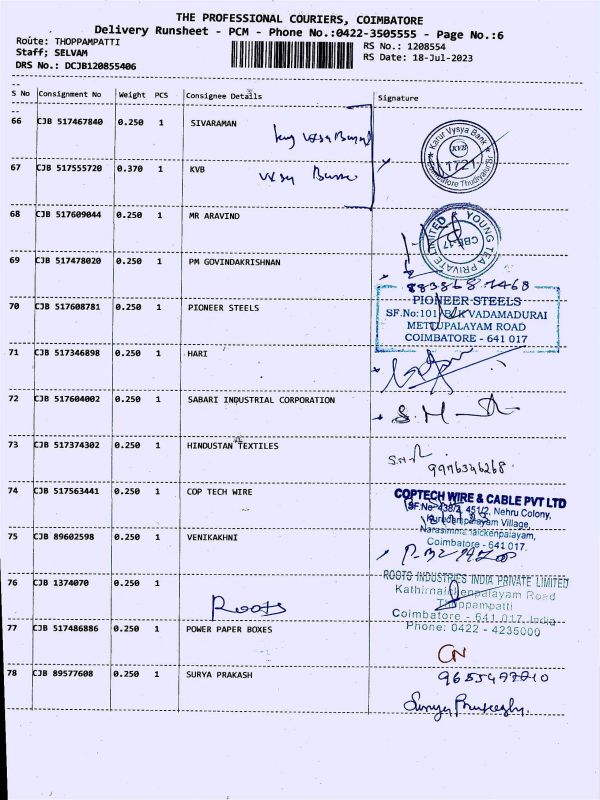 THE PROFESSIONAL COURIERS, COIMBATORE
Delivery Runsheet - PCM - Phone No.:0422-3505555 - Page No.:6
Route: THOPPAMPATTI
Staff; SELVAM
DRS No.: DCJB120855406
RS No.: 1208554
RS Date: 18-Jul-2023
S No Consignment No Weight PCS Consignee Details Signature
66 CJB 517467840 0.250 1 SIVARAMAN
Karur Vysya Bank
KVB
1721
Coimbatore Thudiyalur Br
67 CJB 517555720 0.370 1 KVB
Vysya
68 CJB 517609044 0.250 1 MR ARAVIND
YOUNG TEA PRIVATE LIMITED
CBE-17
69 CJB 517478020 0.250 1 PM GOVINDAKRISHNAN
70 CJB 517608781 0.250 1 PIONEER STEELS
PIONEER STEELS
SF.No:101 VADAMADURAI
METTUPALAYAM ROAD
COIMBATORE - 641 017
71 CJB 517346898 0.250 1 HARI
72 CJB 517604002 0.250 1 SABARI INDUSTRIAL CORPORATION
S.M
73 CJB 517374302 0.250 1 HINDUSTAN TEXTILES
9976346268
74 CJB 517563441 0.250 1 COP TECH WIRE
COPTECH WIRE & CABLE PVT LTD
SF.No-438/2, 451/2, Nehru Colony,
Kurudampalayam Village,
Narasimmanaickenpalayam,
Coimbatore - 641 017.
75 CJB 89602598 0.250 1 VENIKAKHNI
76 CJB 1374070 0.250 1
Roots
ROOTS INDUSTRIES INDIA PRIVATE LIMITED
Kathirnaickenpalayam Road
Thoppampatti
Coimbatore - 641 017. India
Phone: 0422 - 4235000
77 CJB 517486886 0.250 1 POWER PAPER BOXES
CN
78 CJB 89577608 0.250 1 SURYA PRAKASH
Surya Prakash